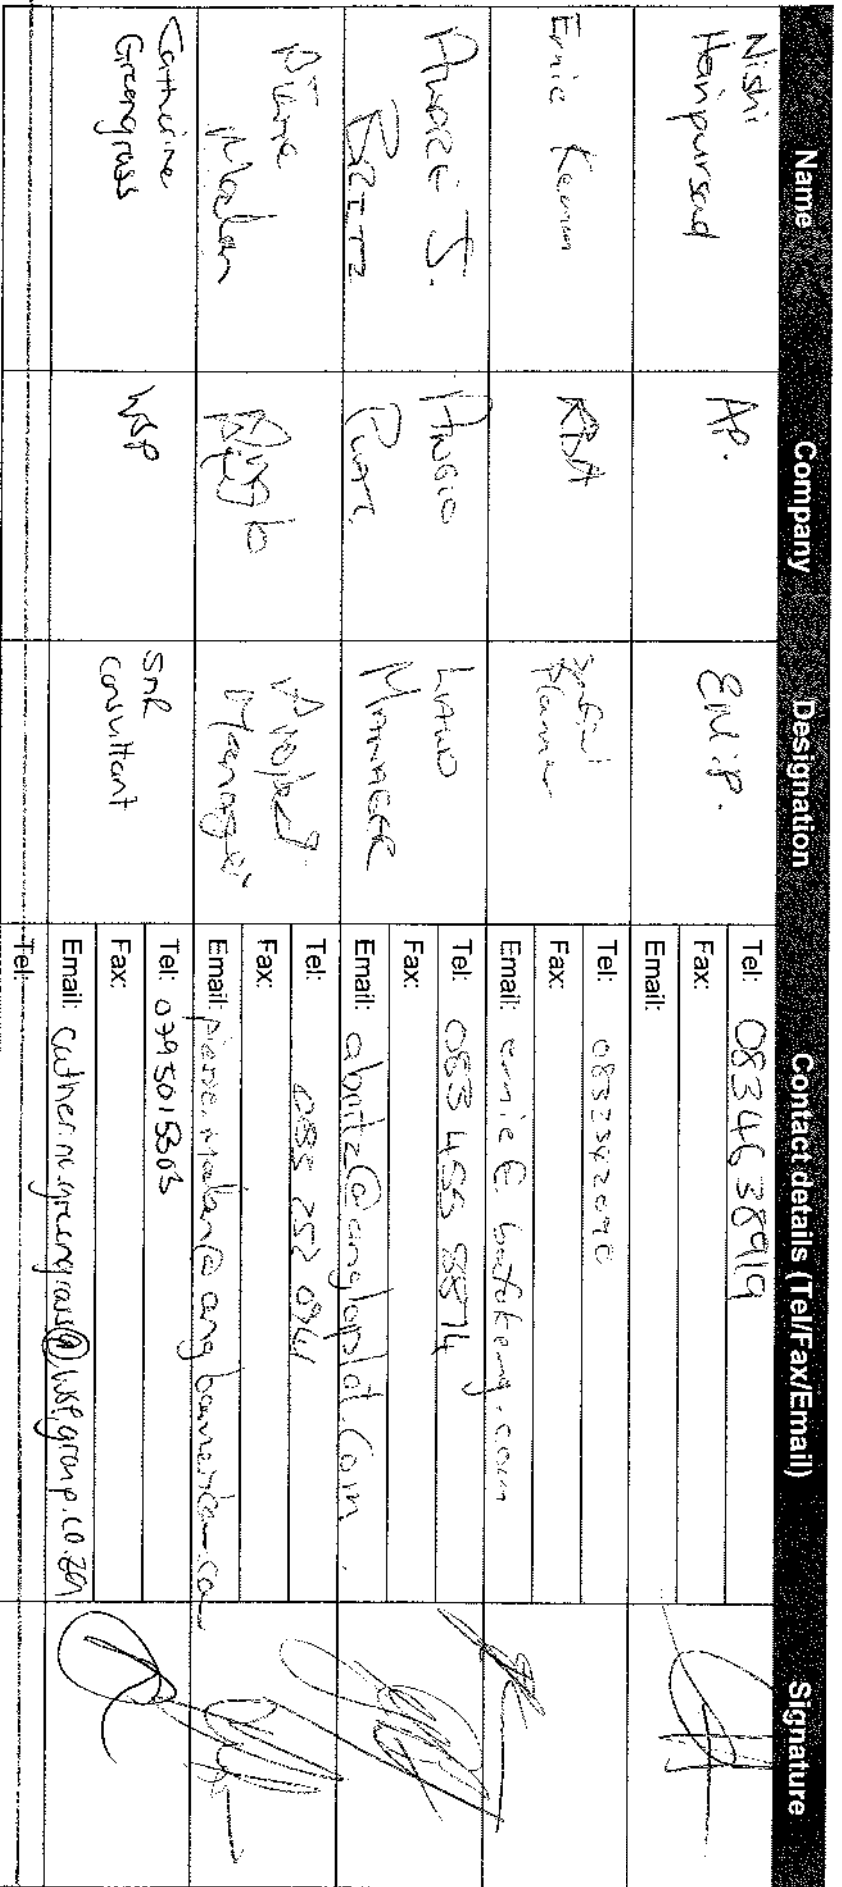 Name Company Designation Contact details (Tel/Fax/Email) Signature
Nishi
Haripursad
AP.
Tel: 0834638919
Fax:
Email:
Ernie
RBA
Planner
Tel:
Fax:
Email: ernie@bafokeng.com
ANDRÉ J.
BRITZ
ANGLO
PLAT.
LAND
MANAGER
Tel: 083 455 8874
Fax:
Email: abritz@angloplat.com
Pierre
Malan
Project
Manager
Tel:
Fax:
Email:
Catherine
Greengrass
WSP
SNR
Consultant
Tel:
Fax:
Email: catherine.greengrass@wspgroup.co.za
Tel: